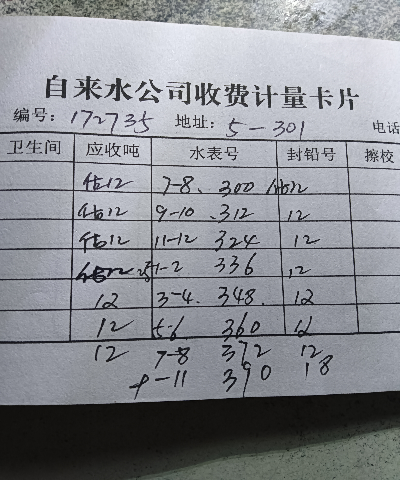 自来水公司收费计量卡片
编号: 172735 地址: 5-301 电话
卫生间 应收吨 水表号 封铅号 擦校
估12 7-8、 300 估12
估12 9-10 .312 12
估12 11-12 324 12
1-2 336 12
12 3-4. 348. 12
12 5-6 360 12
12 7-8 372 12
9-11 390 18